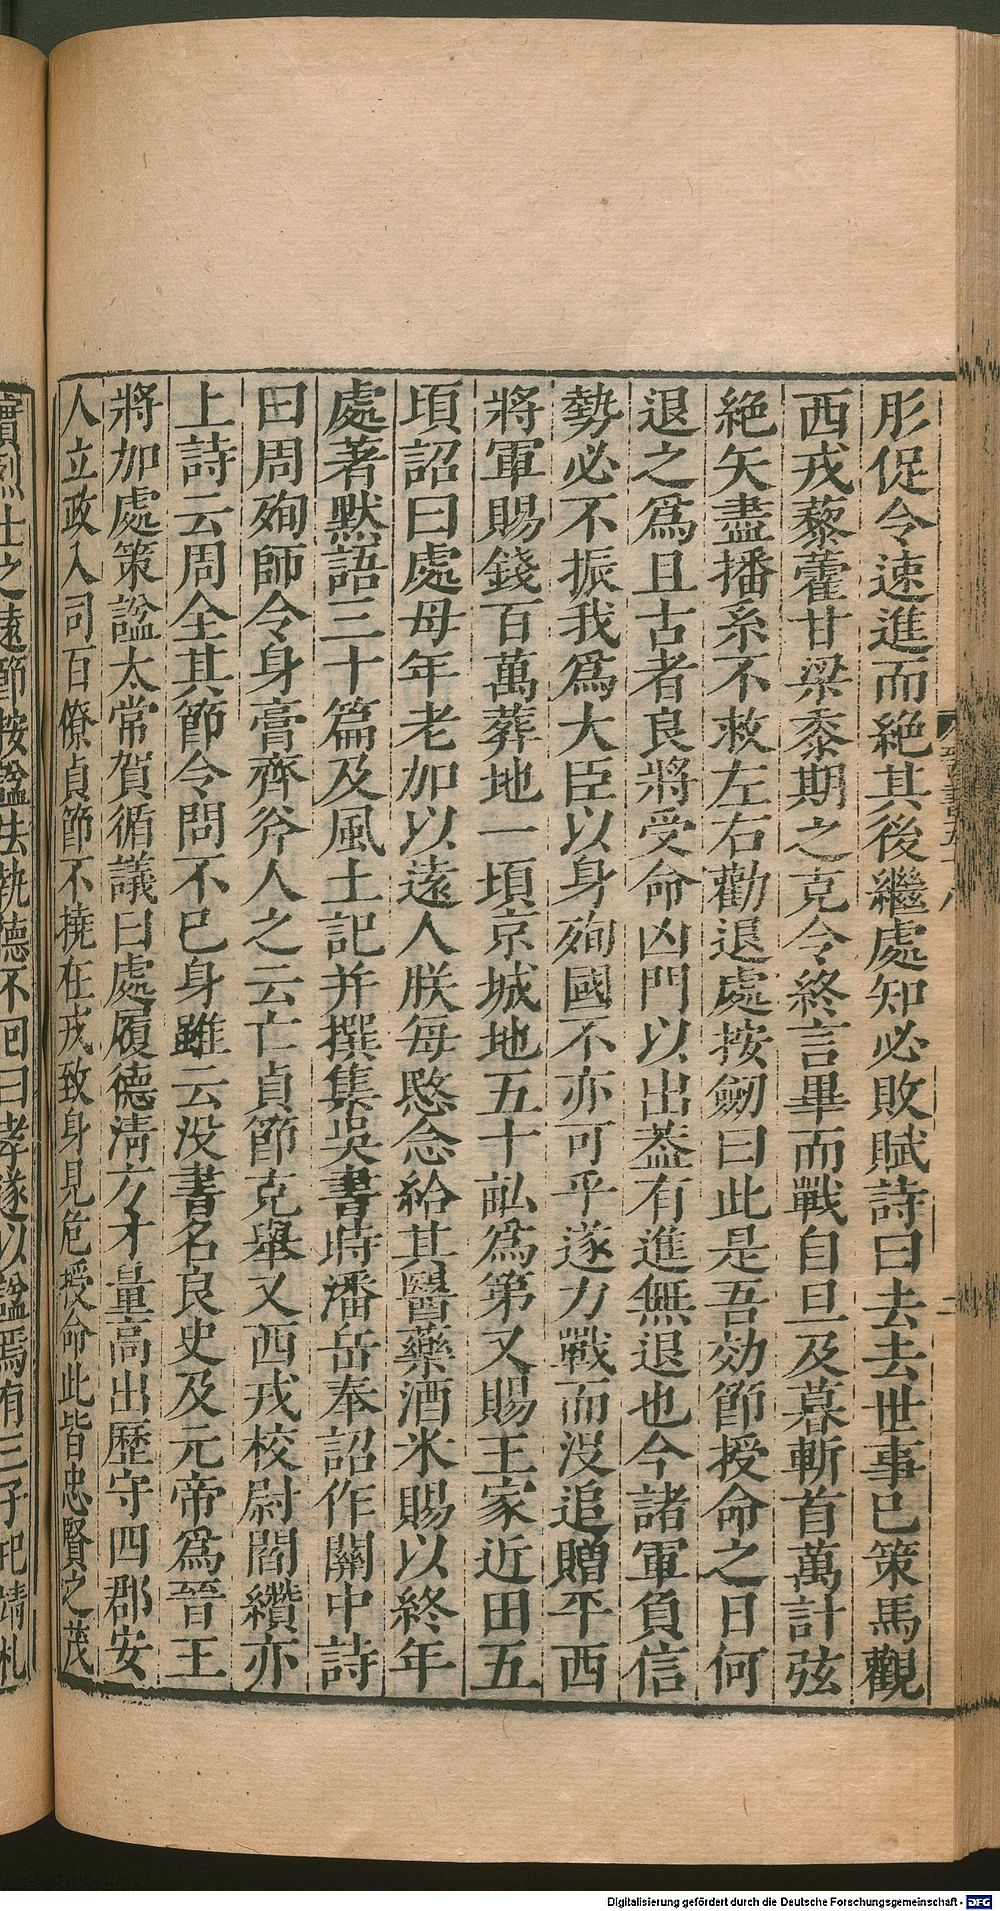 肜促令速進而絶其後繼處知必敗賦詩曰去去世事已策馬觀
西戎藜藿甘梁黍期之克令終言畢而戰自旦及暮斬首萬計弦
絶矢盡播系不救左右勸退處按劒曰此是吾効節授命之日何
退之爲且古者良將受命凶門以出葢有進無退也今諸軍負信
勢必不振我爲大臣以身殉國不亦可乎遂力戰而没追贈平西
將軍賜錢百萬葬地一頃京城地五十畝爲第又賜王家近田五
頃詔曰處母年老加以遠人朕每愍念給其醫藥酒米賜以終年
處著默語三十篇及風土記并撰集吳書時潘岳奉詔作關中詩
曰周殉師令身膏齊斧人之云亡貞節克舉又西戎校尉閻纘亦
上詩云周全其節令問不已身雖云没書名良史及元帝爲晉王
將加處策諡太常賀循議曰處履德淸方才量高出歷守四郡安
人立政入司百僚貞節不撓在戎致身見危授命此皆忠賢之茂
實烈士之遠節按諡法執德不回曰孝遂以諡焉有三子玘靖札
Digitalisierung gefördert durch die Deutsche Forschungsgemeinschaft - DFG